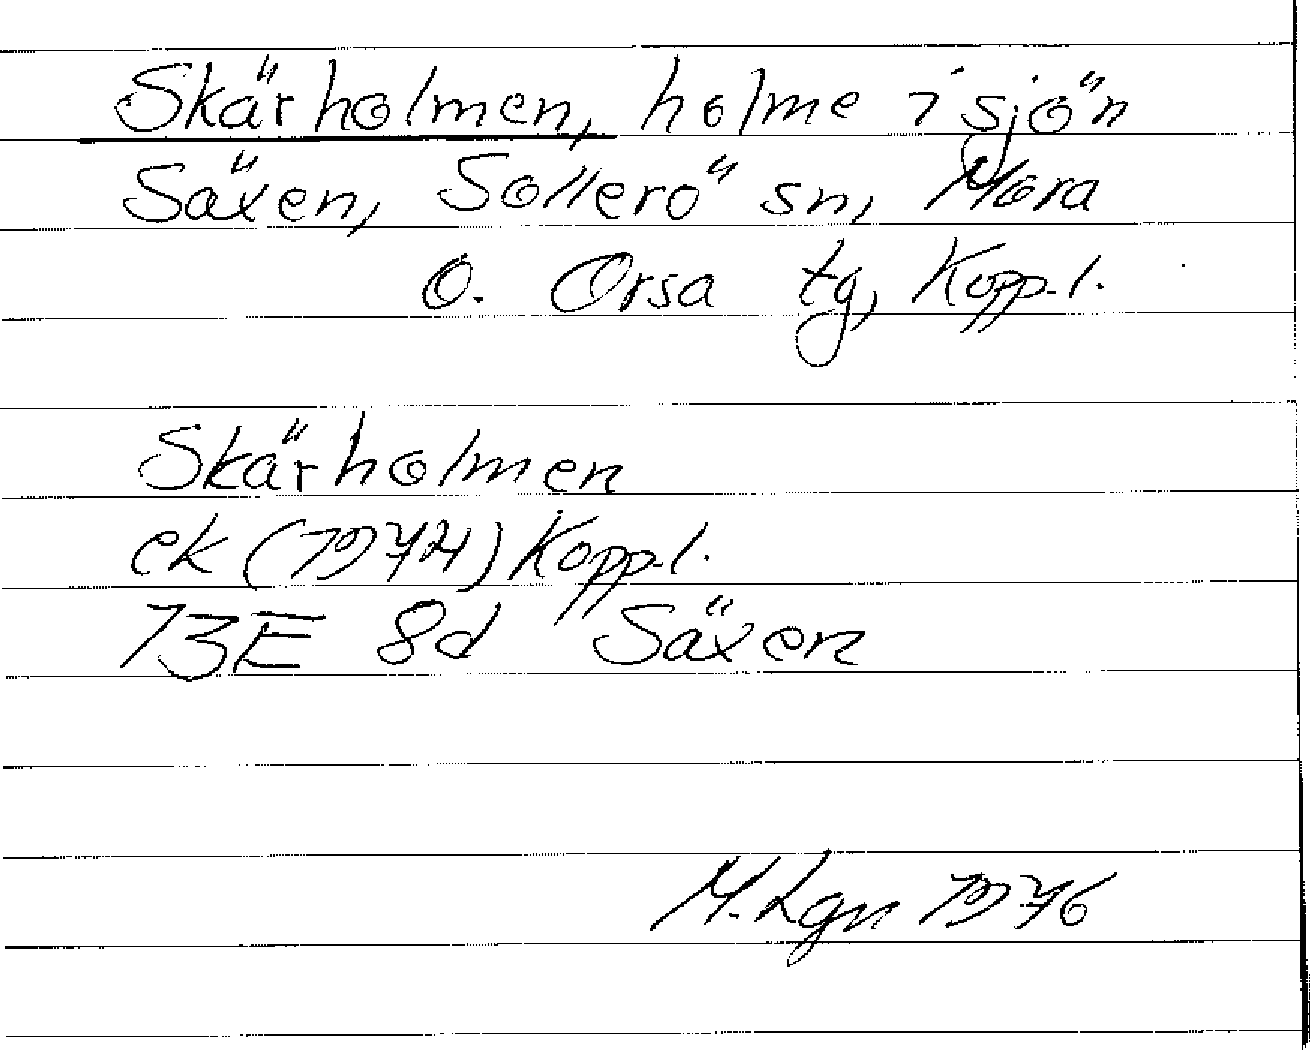 Skärholmen, holme i sjön
Säxen, Sollerö sn, Mora
o. Orsa tg, Kopp.l.
Skärholmen
ek (1974) Kopp.l.
13E 8d Säxen
M. Lgn 1976